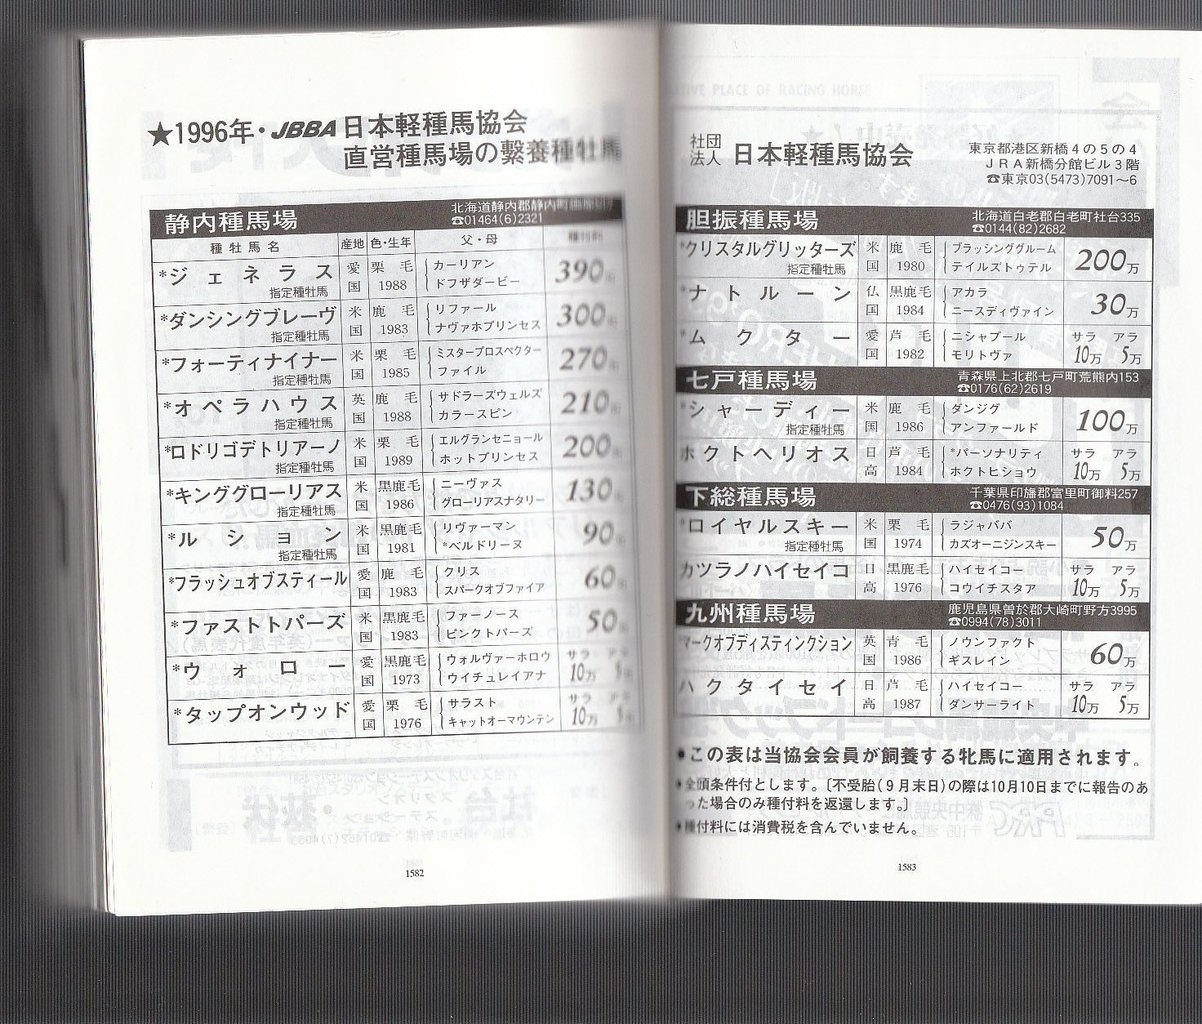 ★1996年・JBBA 日本軽種馬協会
直営種馬場の繫養種牡馬
静内種馬場
北海道静内郡静内町
☎01464(6)2321
種牡馬名 産地 色・生年 父・母 種付料
*ジェネラス 指定種牡馬 愛国 栗毛 1988 カーリアン ドフザダービー 390
*ダンシングブレーヴ 指定種牡馬 米国 鹿毛 1983 リファール ナヴァホプリンセス 300
*フォーティナイナー 指定種牡馬 米国 栗毛 1985 ミスタープロスペクター ファイル 270
*オペラハウス 指定種牡馬 英国 鹿毛 1988 サドラーズウェルズ カラースピン 210
*ロドリゴデトリアーノ 指定種牡馬 米国 栗毛 1989 エルグランセニョール ホットプリンセス 200
*キンググローリアス 指定種牡馬 米国 黒鹿毛 1986 ニーヴァス グローリアスナタリー 130
*ルション 指定種牡馬 米国 黒鹿毛 1981 リヴァーマン *ベルドリーヌ 90
*フラッシュオブスティール 愛国 鹿毛 1983 クリス スパークオブファイア 60
*ファストトパーズ 米国 黒鹿毛 1983 ファーノース ピンクトパーズ 50
*ウォロー 愛国 黒鹿毛 1973 ウォルヴァーホロウ ウイチュレイアナ サラ 10万 アラ 5万
*タップオンウッド 愛国 栗毛 1976 サラスト キャットオーマウンテン サラ 10万 アラ 5万
1582
社団法人 日本軽種馬協会
東京都港区新橋4の5の4
JRA新橋分館ビル3階
☎東京03(5473)7091～6
胆振種馬場
北海道白老郡白老町社台335
☎0144(82)2682
*クリスタルグリッターズ 指定種牡馬 米国 鹿毛 1980 ブラッシンググルーム テイルズトゥテル 200万
*ナトルーン 指定種牡馬 仏国 黒鹿毛 1984 アカラ ニースディヴァイン 30万
*ムクター 愛国 芦毛 1982 ニシャプール モリトヴァ サラ 10万 アラ 5万
七戸種馬場
青森県上北郡七戸町荒熊内153
☎0176(62)2619
*シャーディー 指定種牡馬 米国 鹿毛 1986 ダンジグ アンファールド 100万
ホクトヘリオス 日高 芦毛 1984 *パーソナリティ ホクトヒショウ サラ 10万 アラ 5万
下総種馬場
千葉県印旛郡富里町御料257
☎0476(93)1084
*ロイヤルスキー 指定種牡馬 米国 栗毛 1974 ラジャババ カズオーニジンスキー 50万
カツラノハイセイコ 日高 黒鹿毛 1976 ハイセイコー コウイチスタア サラ 10万 アラ 5万
九州種馬場
鹿児島県曽於郡大崎町野方3995
☎0994(78)3011
*マークオブディスティンクション 英国 青毛 1986 ノウンファクト ギスレイン 60万
ハクタイセイ 日高 芦毛 1987 ハイセイコー ダンサーライト サラ 10万 アラ 5万
●この表は当協会会員が飼養する牝馬に適用されます。
●全頭条件付とします。〔不受胎(9月末日)の際は10月10日までに報告のあ
った場合のみ種付料を返還します。〕
●種付料には消費税を含んでいません。
1583